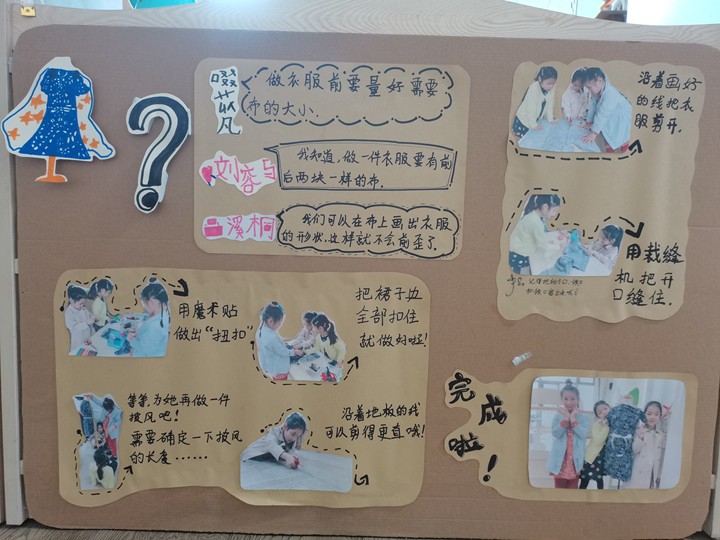 ?
做衣服前要量好需要
布的大小.
刘容与
我知道,做一件衣服要有前
后两块一样的布.
溪桐
我们可以在布上画出衣服
的形状,这样就不会剪歪了.
沿着画好
的线把衣
服剪开.
用裁缝
机把开
口缝住.
用魔术贴
做出“扭扣”
把裙子边
全部扣住
就做好啦!
等等,为她再做一件
披风吧!
需要确定一下披风
的长度……
沿着地板的线
可以剪得更直哦!
完成啦!